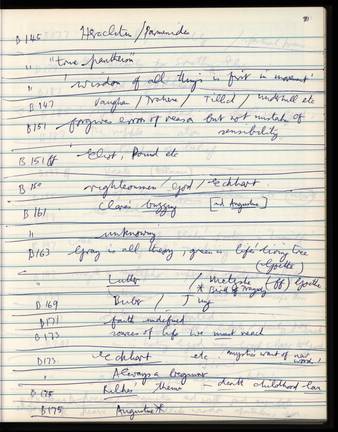 B 145 Heraclitus / Parmenides
" "true pantheon"
" 'wisdom of all things is first in movement'
B 147 Vaughan / Traherne / Tillich / Underhill etc
B151 forgives error of reason but not mistake of
sensibility
B 151 ff Eliot, Pound etc
B 150 righteousness / God / Eckhart
B 161 [and Augustine]
" unknowing
B163 Gray is all theory, green is life's living tree
(Goethe)
" Luther / Nietzsche (ff) Goethe
* Birth of Tragedy
B 169 Buber / Jung
B171 faith undefined
B 173 sources of life we must reach
B173 Eckhart etc. mystic's want of new
word'
" Always a beginner
B 175 Rilke's theme – death childhood love
B175 Augustine *